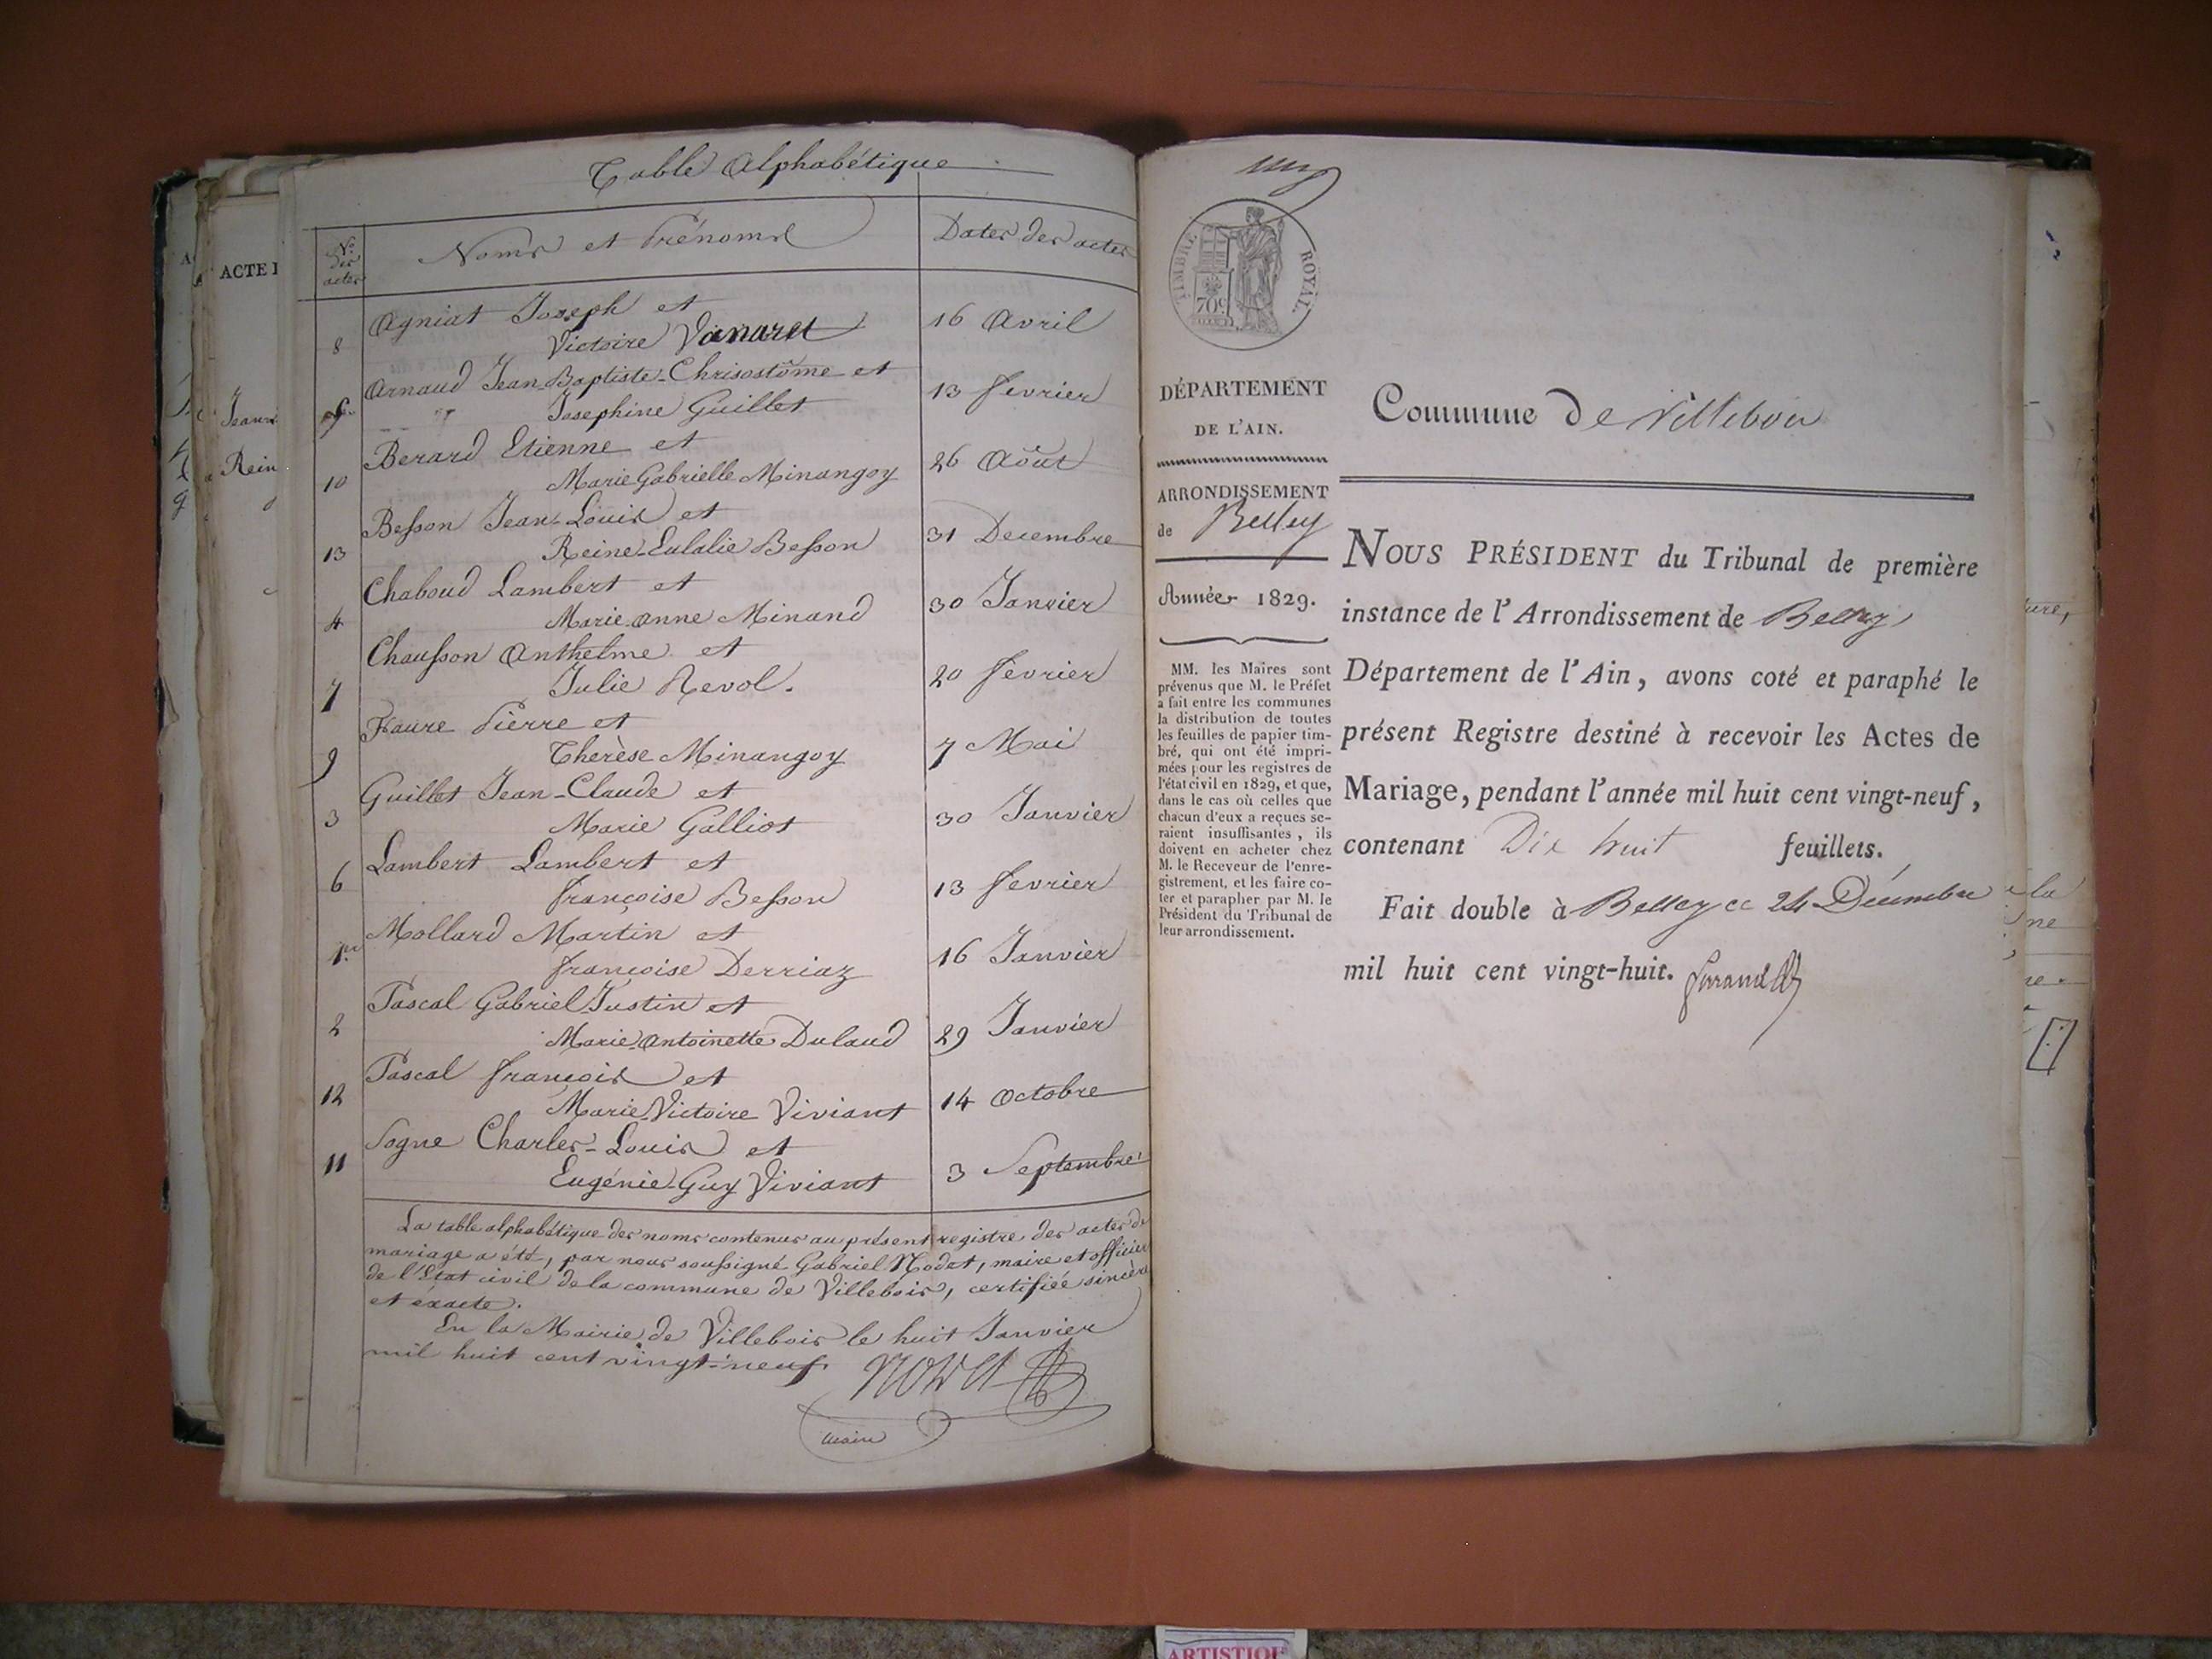 Table Alphabétique
Nos des actes
Noms et Prénoms
Dates des actes
Agniat Joseph et
8 Victoire Vanaret 16 Avril
Arnaud Jean-Baptiste-Chrisostôme et
5 Josephine Guillet 13 fevrier
Berard Etienne et
10 Marie Gabrielle Minangoy 26 Aôut
Besson Jean-Louis et
13 Reine-Eulalie Besson 31 Decembre
Chaboud Lambert et
4 Marie-anne Minand 30 Janvier
Chausson Anthelme et
7 Julie Revol. 20 février
Faure Pierre et
9 Therèse Minangoy 7 Mai
Guillet Jean-Claude et
3 Marie Galliot 30 Janvier
Lambert Lambert et
6 françoise Besson 13 fevrier
Mollard Martin et
1er françoise Derriaz 16 Janvier
Pascal Gabriel Justin et
2 Marie-Antoinette Dulaud 29 Janvier
Pascal françois et
12 Marie Victoire Viviant 14 octobre
Sogne Charles-Louis et
11 Eugénie-Guy Viviant 3 Septembre
La table alphabétique des noms contenus au présent registre des actes de
mariage a été, par nous soussigné Gabriel Nodet, maire et officier
de l'Etat civil de la commune de Villebois, certifiée sincère
et éxacte.
En la Mairie de Villebois le huit Janvier
mil huit cent vingt-neuf.
Nodet
maire
ACTE
Jean
Rein
TIMBRE ROYAL.
70c
DÉPARTEMENT
DE L'AIN.
ARRONDISSEMENT
de Belley
Année 1829.
MM. les Maires sont
prévenus que M. le Préfet
a fait entre les communes
la distribution de toutes
les feuilles de papier tim-
bré, qui ont été impri-
mées pour les registres de
l'état civil en 1829, et que,
dans le cas où celles que
chacun d'eux a reçues se-
raient insuffisantes, ils
doivent en acheter chez
M. le Receveur de l'enre-
gistrement, et les faire co-
ter et parapher par M. le
Président du Tribunal de
leur arrondissement.
Commune de Villebois
NOUS PRÉSIDENT du Tribunal de première
instance de l'Arrondissement de Belley
Département de l'Ain, avons coté et paraphé le
présent Registre destiné à recevoir les Actes de
Mariage, pendant l'année mil huit cent vingt-neuf,
contenant Dix huit feuillets.
Fait double à Belley ce 24 Décembre
mil huit cent vingt-huit.
ARTISTIQUE